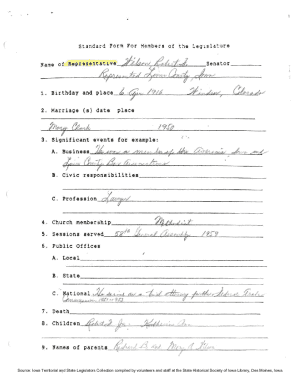 Standard Form For Members of the Legislature
Name of Representative Wilson, Robert D. Senator
Represented Linn County, Iowa
1. Birthday and place 6 Apr 1916 Windsor, Colorado
2. Marriage (s) date place
Mary Clark 1950
3. Significant events for example:
A. Business He was a member of the American, Iowa and
Linn County Bar Associations
B. Civic responsibilities
C. Profession Lawyer
4. Church membership Methodist
5. Sessions served 58th General Assembly 1959
6. Public Offices
A. Local
B. State
C. National He served as a trial attorney for the Federal Trade
Commission
7. Death
8. Children Robert D. Jr. Katherine
9. Names of parents
Source: Iowa Territorial and State Legislators Collection compiled by volunteers and staff at the State Historical Society of Iowa Library, Des Moines, Iowa.